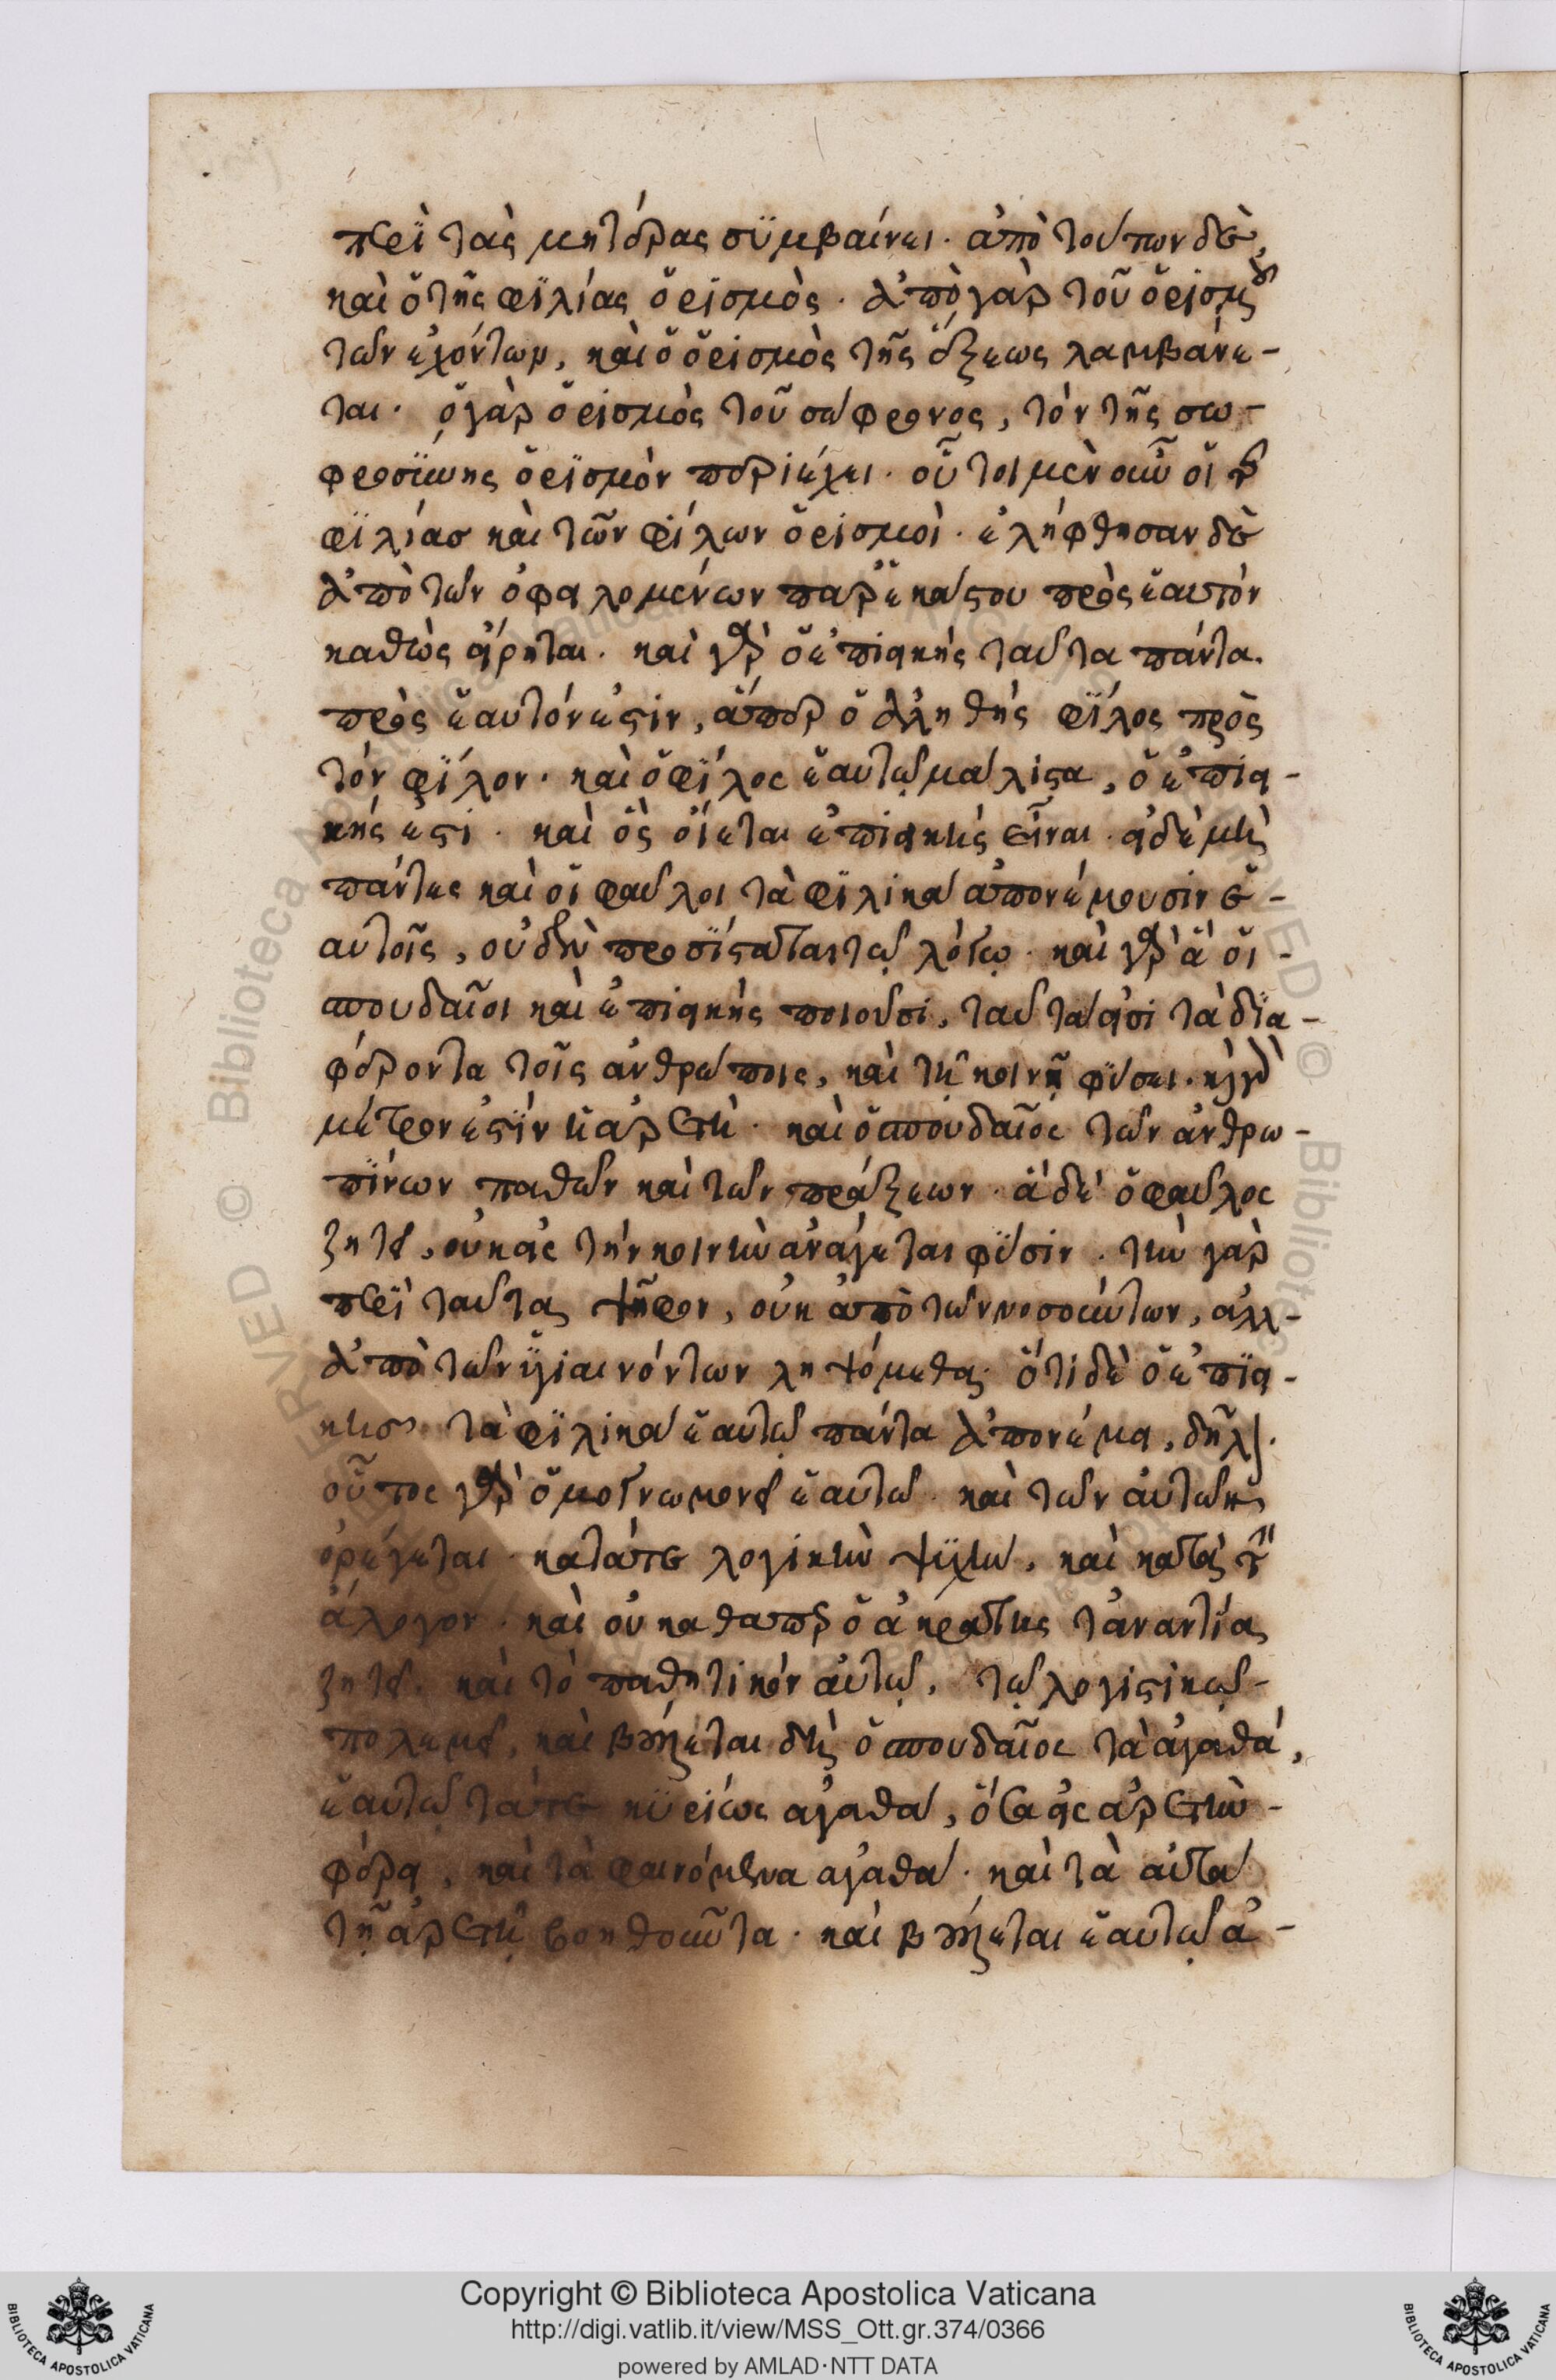 περὶ τὰς μητέρας συμβαίνει. ἀπὸ τούτων δὲ,
καὶ ὁ τῆς φιλίας ὁρισμὸς. ἀπὸ γὰρ τοῦ ὁρισμοῦ
τῶν ἐχόντων, καὶ ὁ ὁρισμὸς τῆς ἕξεως λαμβάνε-
ται. ὁ γὰρ ὁρισμὸς τοῦ σώφρονος, τὸν τῆς σω-
φροσύνης ὁρισμὸν περιέχει. οὗτοι μὲν οὖν οἱ τῆς
φιλίασ καὶ τῶν φίλων ὁρισμοὶ. ἐλήφθησαν δὲ
ἀπὸ τῶν ὀφειλομένων παρ' ἑκάστου πρὸς ἑαυτόν
καθὼς εἴρηται. καὶ γὰρ ὁ ἐπιεικής ταῦτα πάντα.
πρὸς ἑαυτόν ἐστιν, ἅπερ ὁ ἀληθής φίλος πρὸς
τόν φίλον. καὶ ὁ φίλος ἑαυτῷ μάλιστα, ὁ ἐπιει-
κής ἐστι. καὶ ὃς οἴεται ἐπιεικὴς εἶναι. εἰ δὲ μὴ
πάντες καὶ οἱ φαῦλοι τὰ φιλικά ἀπονέμουσιν ἑ-
αυτοῖς, οὐδὲν προσίσταται τῷ λόγῳ. καὶ γὰρ ἃ οἱ
σπουδαῖοι καὶ ἐπιεικής ποιοῦσι, ταῦτά εἰσι τὰ δια-
φέροντα τοῖς ἀνθρώποις, καὶ τῇ κοινῇ φύσει. καὶ γὰρ
μέτρον ἐστίν ἡ ἀρετὴ. καὶ ὁ σπουδαῖος τῶν ἀνθρω-
πίνων παθῶν καὶ τῶν πράξεων. ἃ δὲ ὁ φαῦλος
ζητεῖ, οὐκ εἰς τὴν κοινὴν ἀνάγεται φύσιν. τὴν γὰρ
περὶ ταῦτας ψῆφον, οὐκ ἀπὸ τῶν νοσούντων, ἀλλ-
ἀπὸ τῶν ὑγιαινόντων ληψόμεθα. ὅτι δὲ ὁ ἐπιει-
κὴσ τὰ φιλικά ἑαυτῷ πάντα ἀπονέμει, δῆλον.
οὗτος γὰρ ὁμογνωμονεῖ ἑαυτῷ. καὶ τῶν αὐτῶν
ὀρέγεται. κατά τε λογικὴν ψυχὴν, καὶ κατὰ τὴν
ἄλογον. καὶ οὐ καθάπερ ὁ ἀκρατὴς τἀναντία
ζητεῖ. καὶ τὸ παθητικόν αὐτῷ, τῷ λογιστικῷ-
πολεμεῖ, καὶ βούλεται δὴ ὁ σπουδαῖος τὰ ἀγαθά,
ἑαυτῷ τά τε κυρίως ἀγαθά, ὅσα εἰς ἀρετὴν-
φέρει, καὶ τὰ φαινόμενα ἀγαθά. καὶ τὰ αὐτά
τῇ ἀρετῇ βοηθοῦντα. καὶ βούλεται ἑαυτῷ ἀ-
Copyright © Biblioteca Apostolica Vaticana
http://digi.vatlib.it/view/MSS_Ott.gr.374/0366
powered by AMLAD·NTT DATA